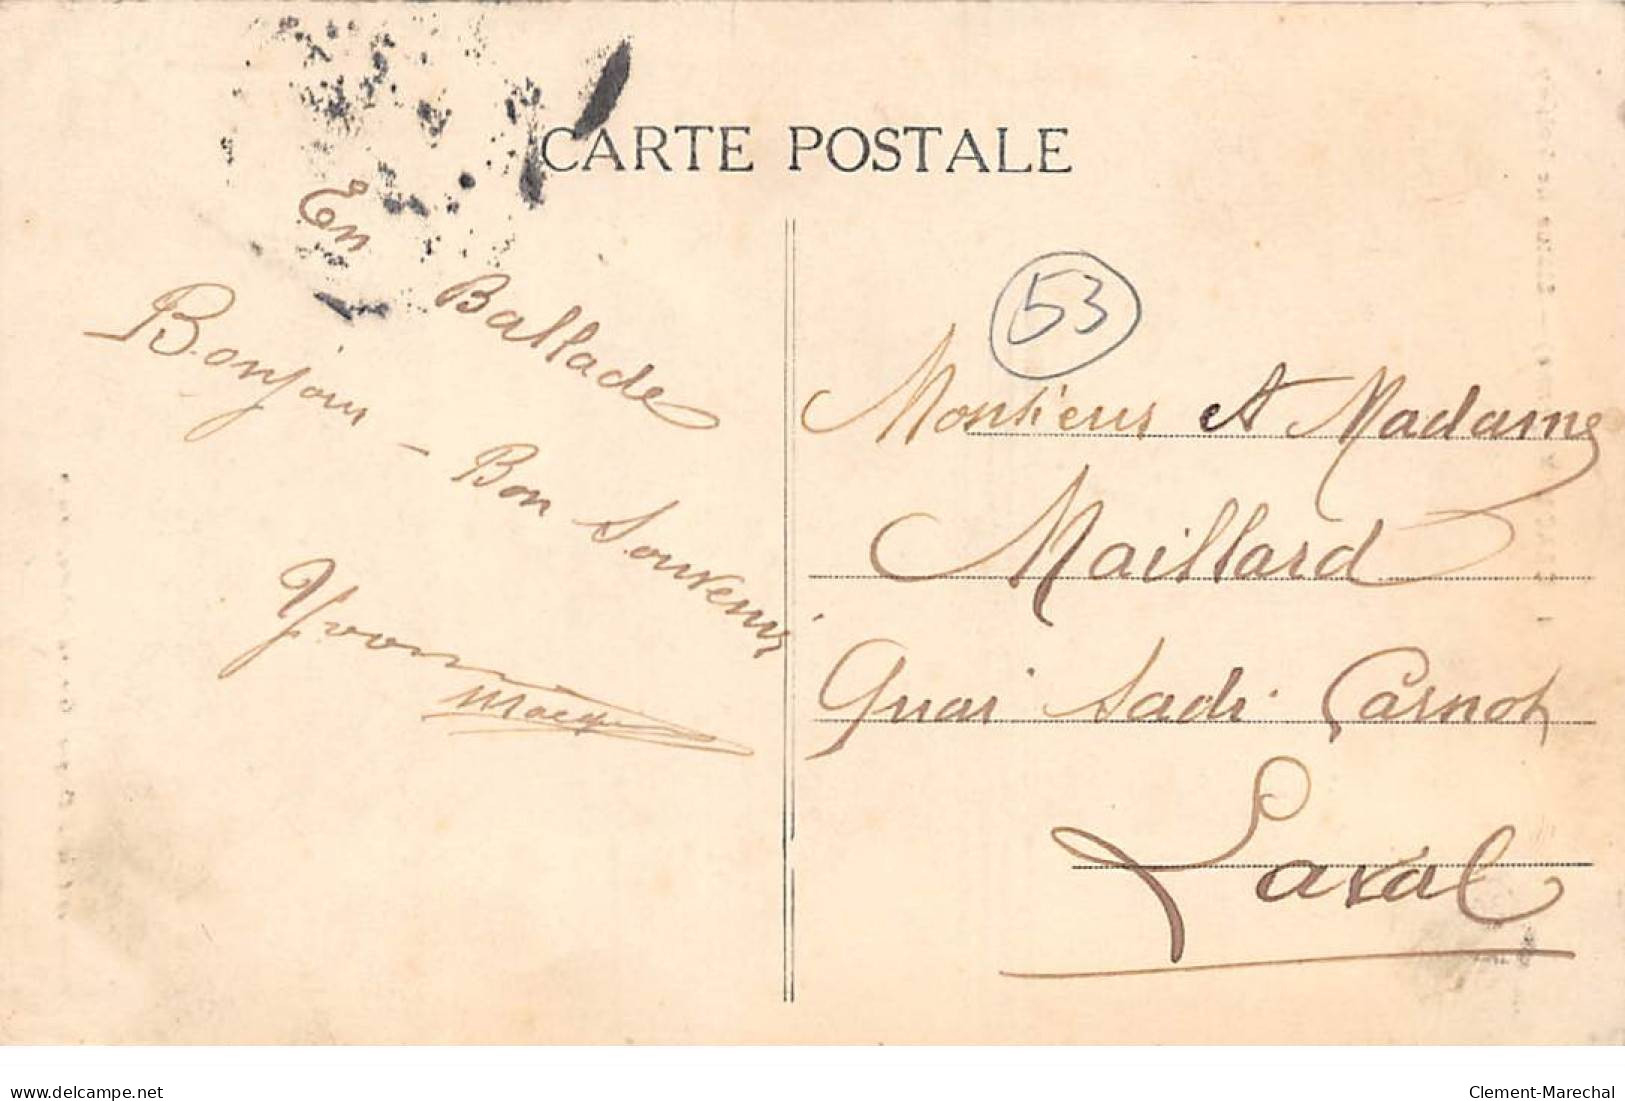 CARTE POSTALE
En Ballade
Bonjour - Bon Souvenir
Yvonne
53
Monsieur et Madame
Maillard
Quai Sadi Carnot
Laval
www.delcampe.net
Clement-Marechal